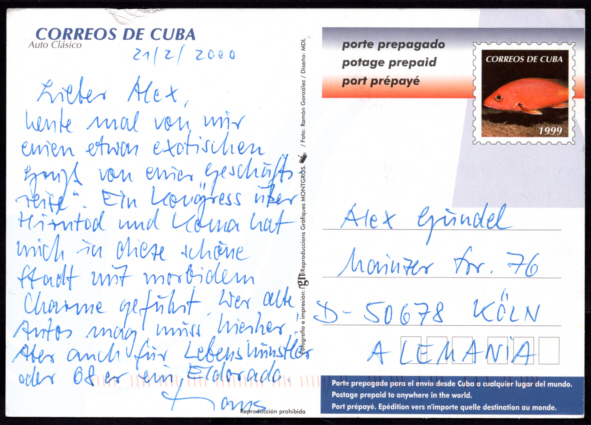 CORREOS DE CUBA
Auto Clásico
21/2/2000
Lieber Alex,
heute mal von mir
einen etwas exotischen
Gruß von einer "Geschäfts-
reise". Ein Kongress über
Hirntod und Koma hat
mich in diese schöne
Stadt mit morbidem
Charme geführt. Wer alte
Autos mag muss hierher,
Aber auch für Lebenskünstler
oder 68er ein Eldorado.
Reproducción prohibida
Fotografía e impresión: Reproduccions Gràfiques MONTGRÒS. / Foto: Ramón González / Diseño: MDL
porte prepagado
potage prepaid
port prépayé
CORREOS DE CUBA
1999
Alex Gündel
Mainzer Str. 76
D-50678 KÖLN
ALEMANIA
Porte prepagado para el envío desde Cuba a cualquier lugar del mundo.
Postage prepaid to anywhere in the world.
Port prépayé. Epédition vers n'importe quelle destination au monde.